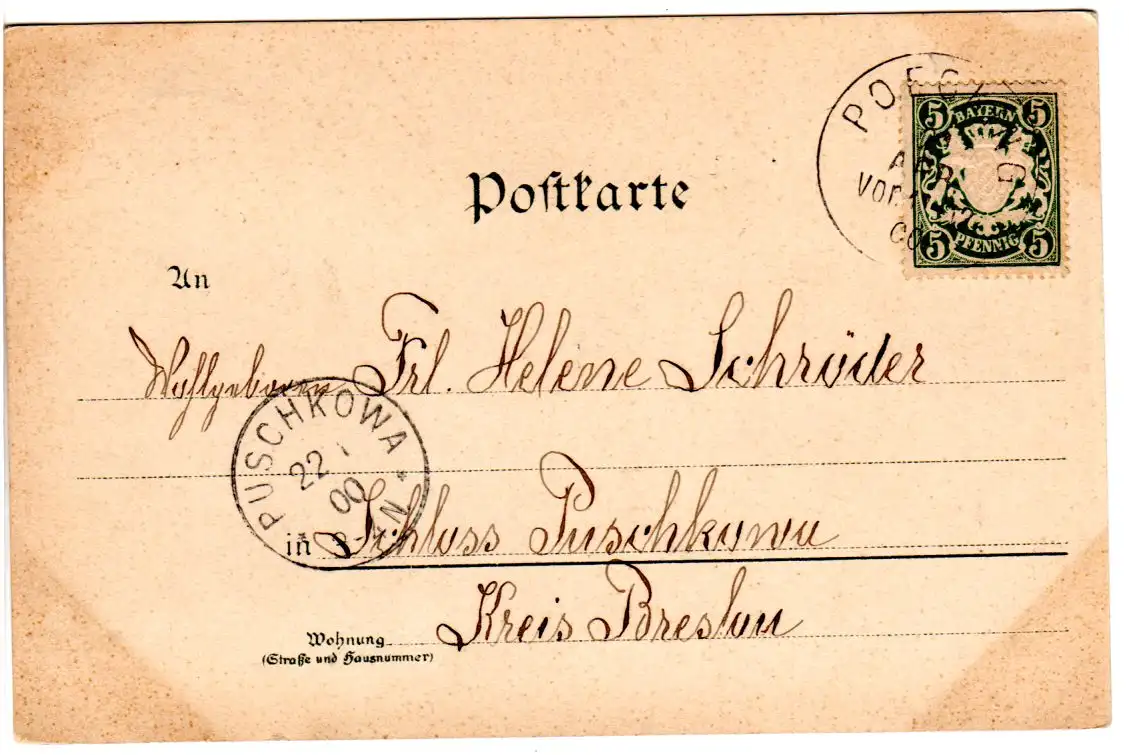 Postkarte
5 5
BAYERN
PFENNIG
5 5
VOR.
An
Wohlgeboren Frl. Helene Schröder
PUSCHKOWA
22
00
3-4N
in Schloss Puschkowa
Kreis Breslau
Wohnung
(Straße und Hausnummer)